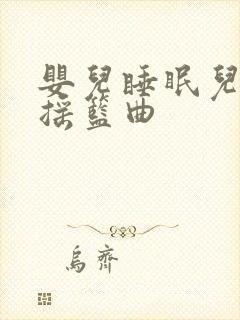 嬰兒睡眠兒
搖籃曲
烏齊